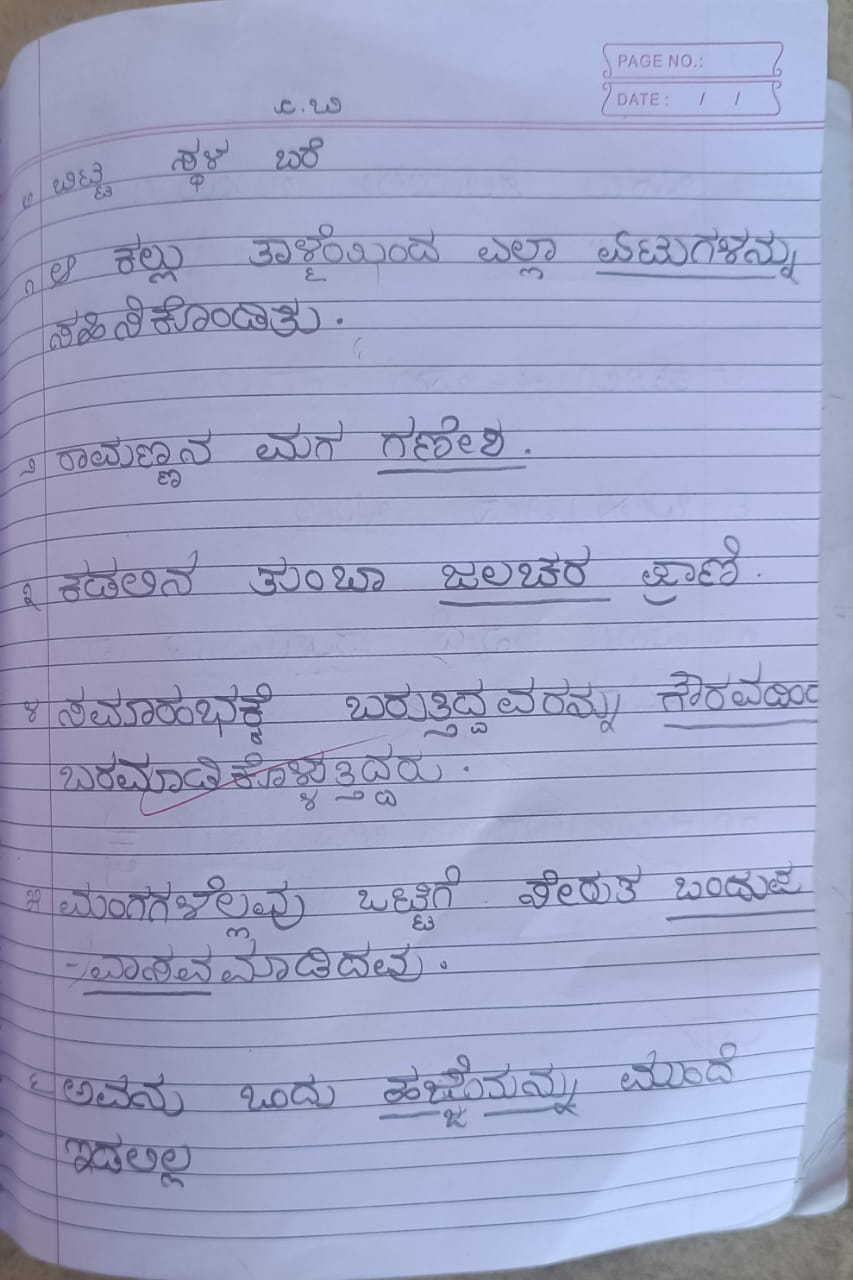 PAGE NO.:
DATE: / /
ಕ.ಬ
ಬಿಟ್ಟ ಸ್ಥಳ ಬರೆ
೧ ಆ ಕಲ್ಲು ತಾಳ್ಮೆಯಿಂದ ಎಲ್ಲಾ ಏಟುಗಳನ್ನು
ಸಹಿಸಿಕೊಂಡಿತು.
೨ ರಾಮಣ್ಣನ ಮಗ ಗಣೇಶ.
೩ ಕಡಲಿನ ತುಂಬಾ ಜಲಚರ ಪ್ರಾಣಿ.
೪ ಸಮಾರಂಭಕ್ಕೆ ಬರುತ್ತಿದ್ದವರನ್ನು ಗೌರವದಿಂ
ಬರಮಾಡಿಕೊಳ್ಳುತ್ತಿದ್ದರು.
೫ ಮಂಗಗಳೆಲ್ಲವು ಒಟ್ಟಿಗೆ ಸೇರುತ ಒಂದುಪ
-ವಾಸವ ಮಾಡಿದವು.
೬ ಅವನು ಒಂದು ಹೆಜ್ಜೆಯನ್ನು ಮುಂದೆ
ಇಡಲಿಲ್ಲ